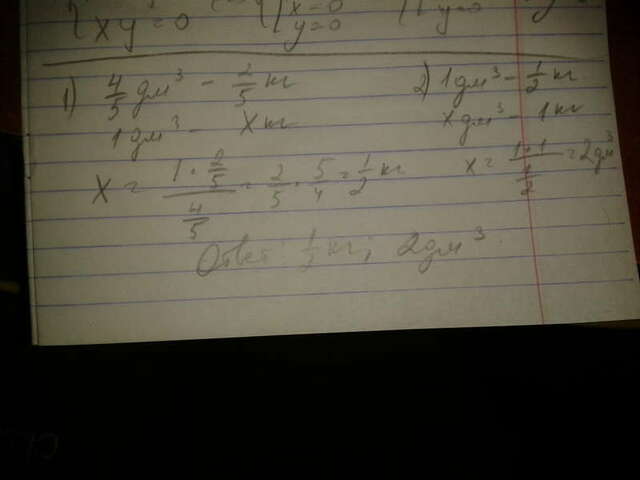 xy = 0
x = 0
y = 0
y = 0
1) 4/5 дм³ - 2/5 кг
1 дм³ - x кг
x = (1 · 2/5) / (4/5) = 2/5 · 5/4 = 1/2 кг
2) 1 дм³ - 1/2 кг
x дм³ - 1 кг
x = (1 · 1) / (1/2) = 2 дм³
Ответ: 1/2 кг; 2 дм³